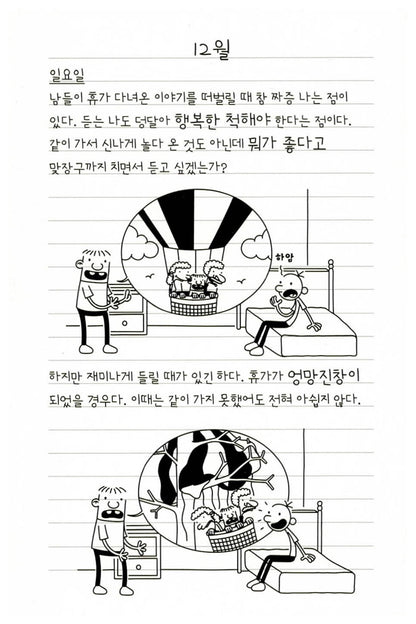 12월
일요일
남들이 휴가 다녀온 이야기를 떠벌릴 때 참 짜증 나는 점이
있다. 듣는 나도 덩달아 행복한 척해야 한다는 점이다.
같이 가서 신나게 놀다 온 것도 아닌데 뭐가 좋다고
맞장구까지 치면서 듣고 싶겠는가?
하암
하지만 재미나게 들릴 때가 있긴 하다. 휴가가 엉망진창이
되었을 경우다. 이때는 같이 가지 못했어도 전혀 아쉽지 않다.